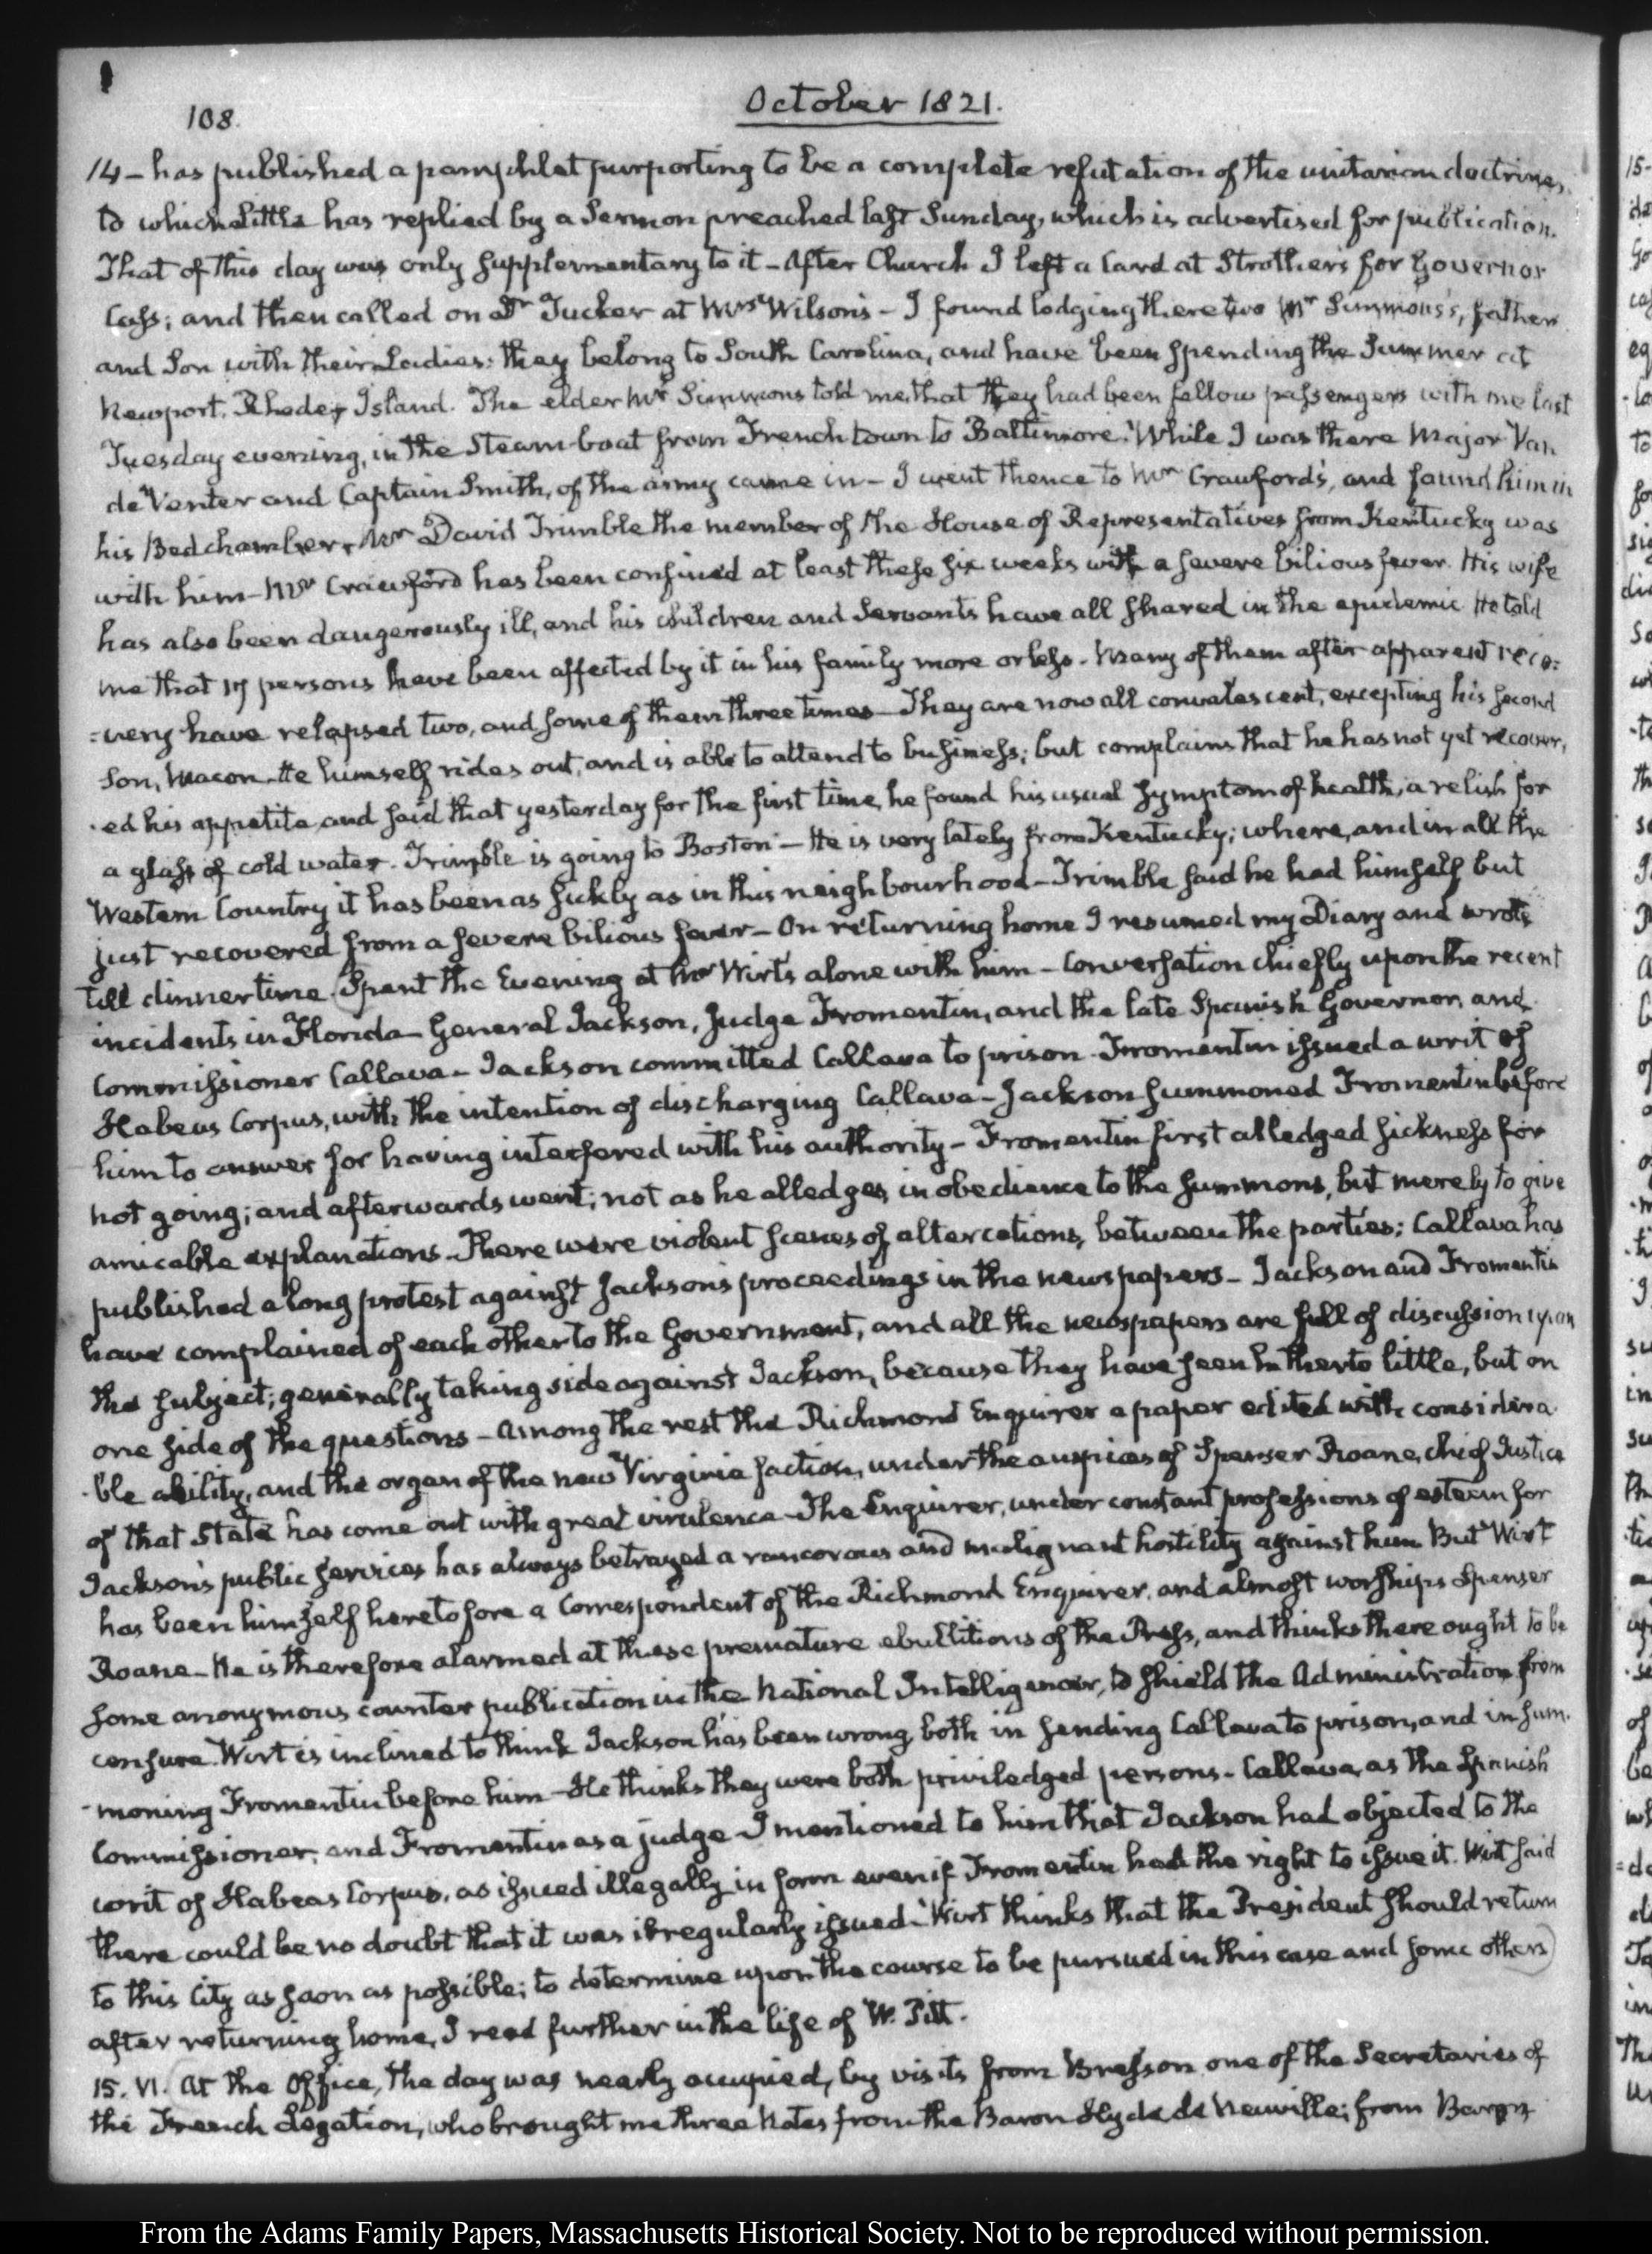 108.
October 1821.
14 – has published a pamphlet purporting to be a complete refutation of the unitarian doctrines,
to which Little has replied by a Sermon preached last Sunday, which is advertised for publication.
That of this day was only supplementary to it – After Church I left a Card at Strother's for Governor
Cass; and then called on Dr Tucker at Mrs Wilson's – I found lodging there two Mr Simmons's, father
and Son with their Ladies: they belong to South Carolina, and have been spending the Summer at
Newport, Rhode Island. The elder Mr Simmons told me, that they had been fellow passengers with me last
Tuesday evening, in the Steam-boat from Frenchtown to Baltimore. While I was there Major Van
de Venter and Captain Smith, of the army came in – I went thence to Mr Crawford's, and found him in
his Bed chamber, Mr David Trimble the member of the House of Representatives from Kentucky was
with him – Mr Crawford has been confined at least these six weeks with a severe bilious fever. His wife
has also been dangerously ill, and his children and Servants have all shared in the epidemic He told
me that 17 persons have been affected by it in his family more or less. Many of them after apparent reco:
:very have relapsed two, and some of them three times – They are now all convalescent, excepting his second
Son, Macon – He himself rides out, and is able to attend to business; but complains that he has not yet recover,
ed his appetite, and said that yesterday for the first time, he found his usual symptom of health, a relish for
a glass of cold water. Trimble is going to Boston – He is very lately from Kentucky; where, and in all the
Western Country it has been as sickly as in this neighbourhood – Trimble said he had himself but
just recovered from a severe bilious fever – On returning home I resumed my Diary and wrote
till dinner time. (Spent the Evening at Mr Wirt's alone with him – Conversation chiefly upon the recent
incidents in Florida – General Jackson, Judge Fromentin, and the late Spanish Governor, and
Commissioner Callava – Jackson committed Callava to prison – Fromentin issued a writ of
Habeas Corpus, with the intention of discharging Callava – Jackson summoned Fromentin before
him to answer for having interfered with his authority – Fromentin first alledged sickness for
not going; and afterwards went; not as he alledges, in obedience to the summons, but merely to give
amicable explanations – There were violent scenes of altercations, between the parties; Callava has
published a long protest against Jackson's proceedings in the newspapers – Jackson and Fromentin
have complained of each other to the Government, and all the newspapers are full of discussion upon
the subject; generally taking side against Jackson, because they have seen hitherto little, but on
one side of the questions – Among the rest the Richmond Enquirer a paper edited with considera
ble ability, and the organ of the new Virginia faction, under the auspices of Spenser Roane, chief Justice
of that State has come out with great virulence – The Enquirer, under constant professions of esteem for
Jackson's public services has always betrayed a rancorous and malignant hostility against him But Wirt
has been himself heretofore a Correspondent of the Richmond Enquirer, and almost worships Spenser
Roane – He is therefore alarmed at these premature ebullitions of the Press, and thinks there ought to be
some anonymous counter publication in the National Intelligencer, to shield the Administration from
censure. Wirt is inclined to think Jackson has been wrong, both in sending Callava to prison, and in sum.
moning Fromentin before him – He thinks they were both priviledged persons – Callava, as the Spanish
Commissioner, and Fromentin as a judge – I mentioned to him that Jackson had objected to the
writ of Habeas Corpus, as issued illegally in form even if Fromentin had the right to issue it. Wirt said
there could be no doubt that it was irregularly issued – Wirt thinks that the President should return
to this City as soon as possible; to determine upon the course to be pursued in this case and some others)
after returning home, I read further in the life of W. Pitt.
15. VI. (At the Office, the day was nearly occupied, by visits from Bresson one of the Secretaries of
the French Legation, who brought me three Notes from the Baron Hyde de Neuville; from Baron
From the Adams Family Papers, Massachusetts Historical Society. Not to be reproduced without permission.